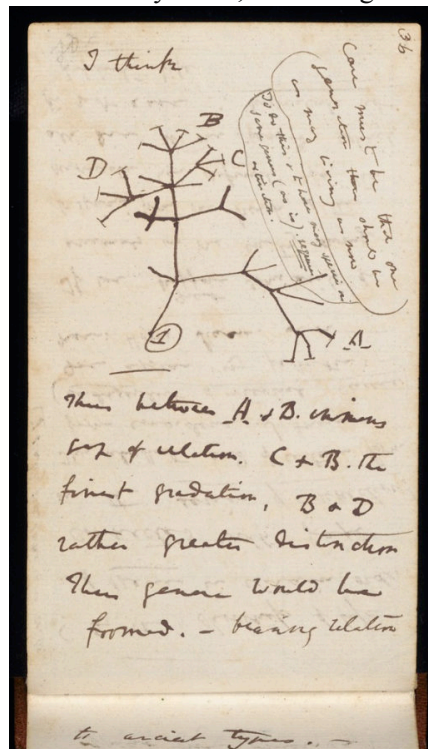 36
I think
Case must be that one
generation then should be
as many living as now
To do this & to have many species in
same genus (as is). requires
extinction.
B
C
D
A
1
Thus between A & B. immens
gap of relation. C & B. the
finest gradation, B & D
rather greater distinction
Thus genera would be
formed. — bearing relation
to ancient types. —